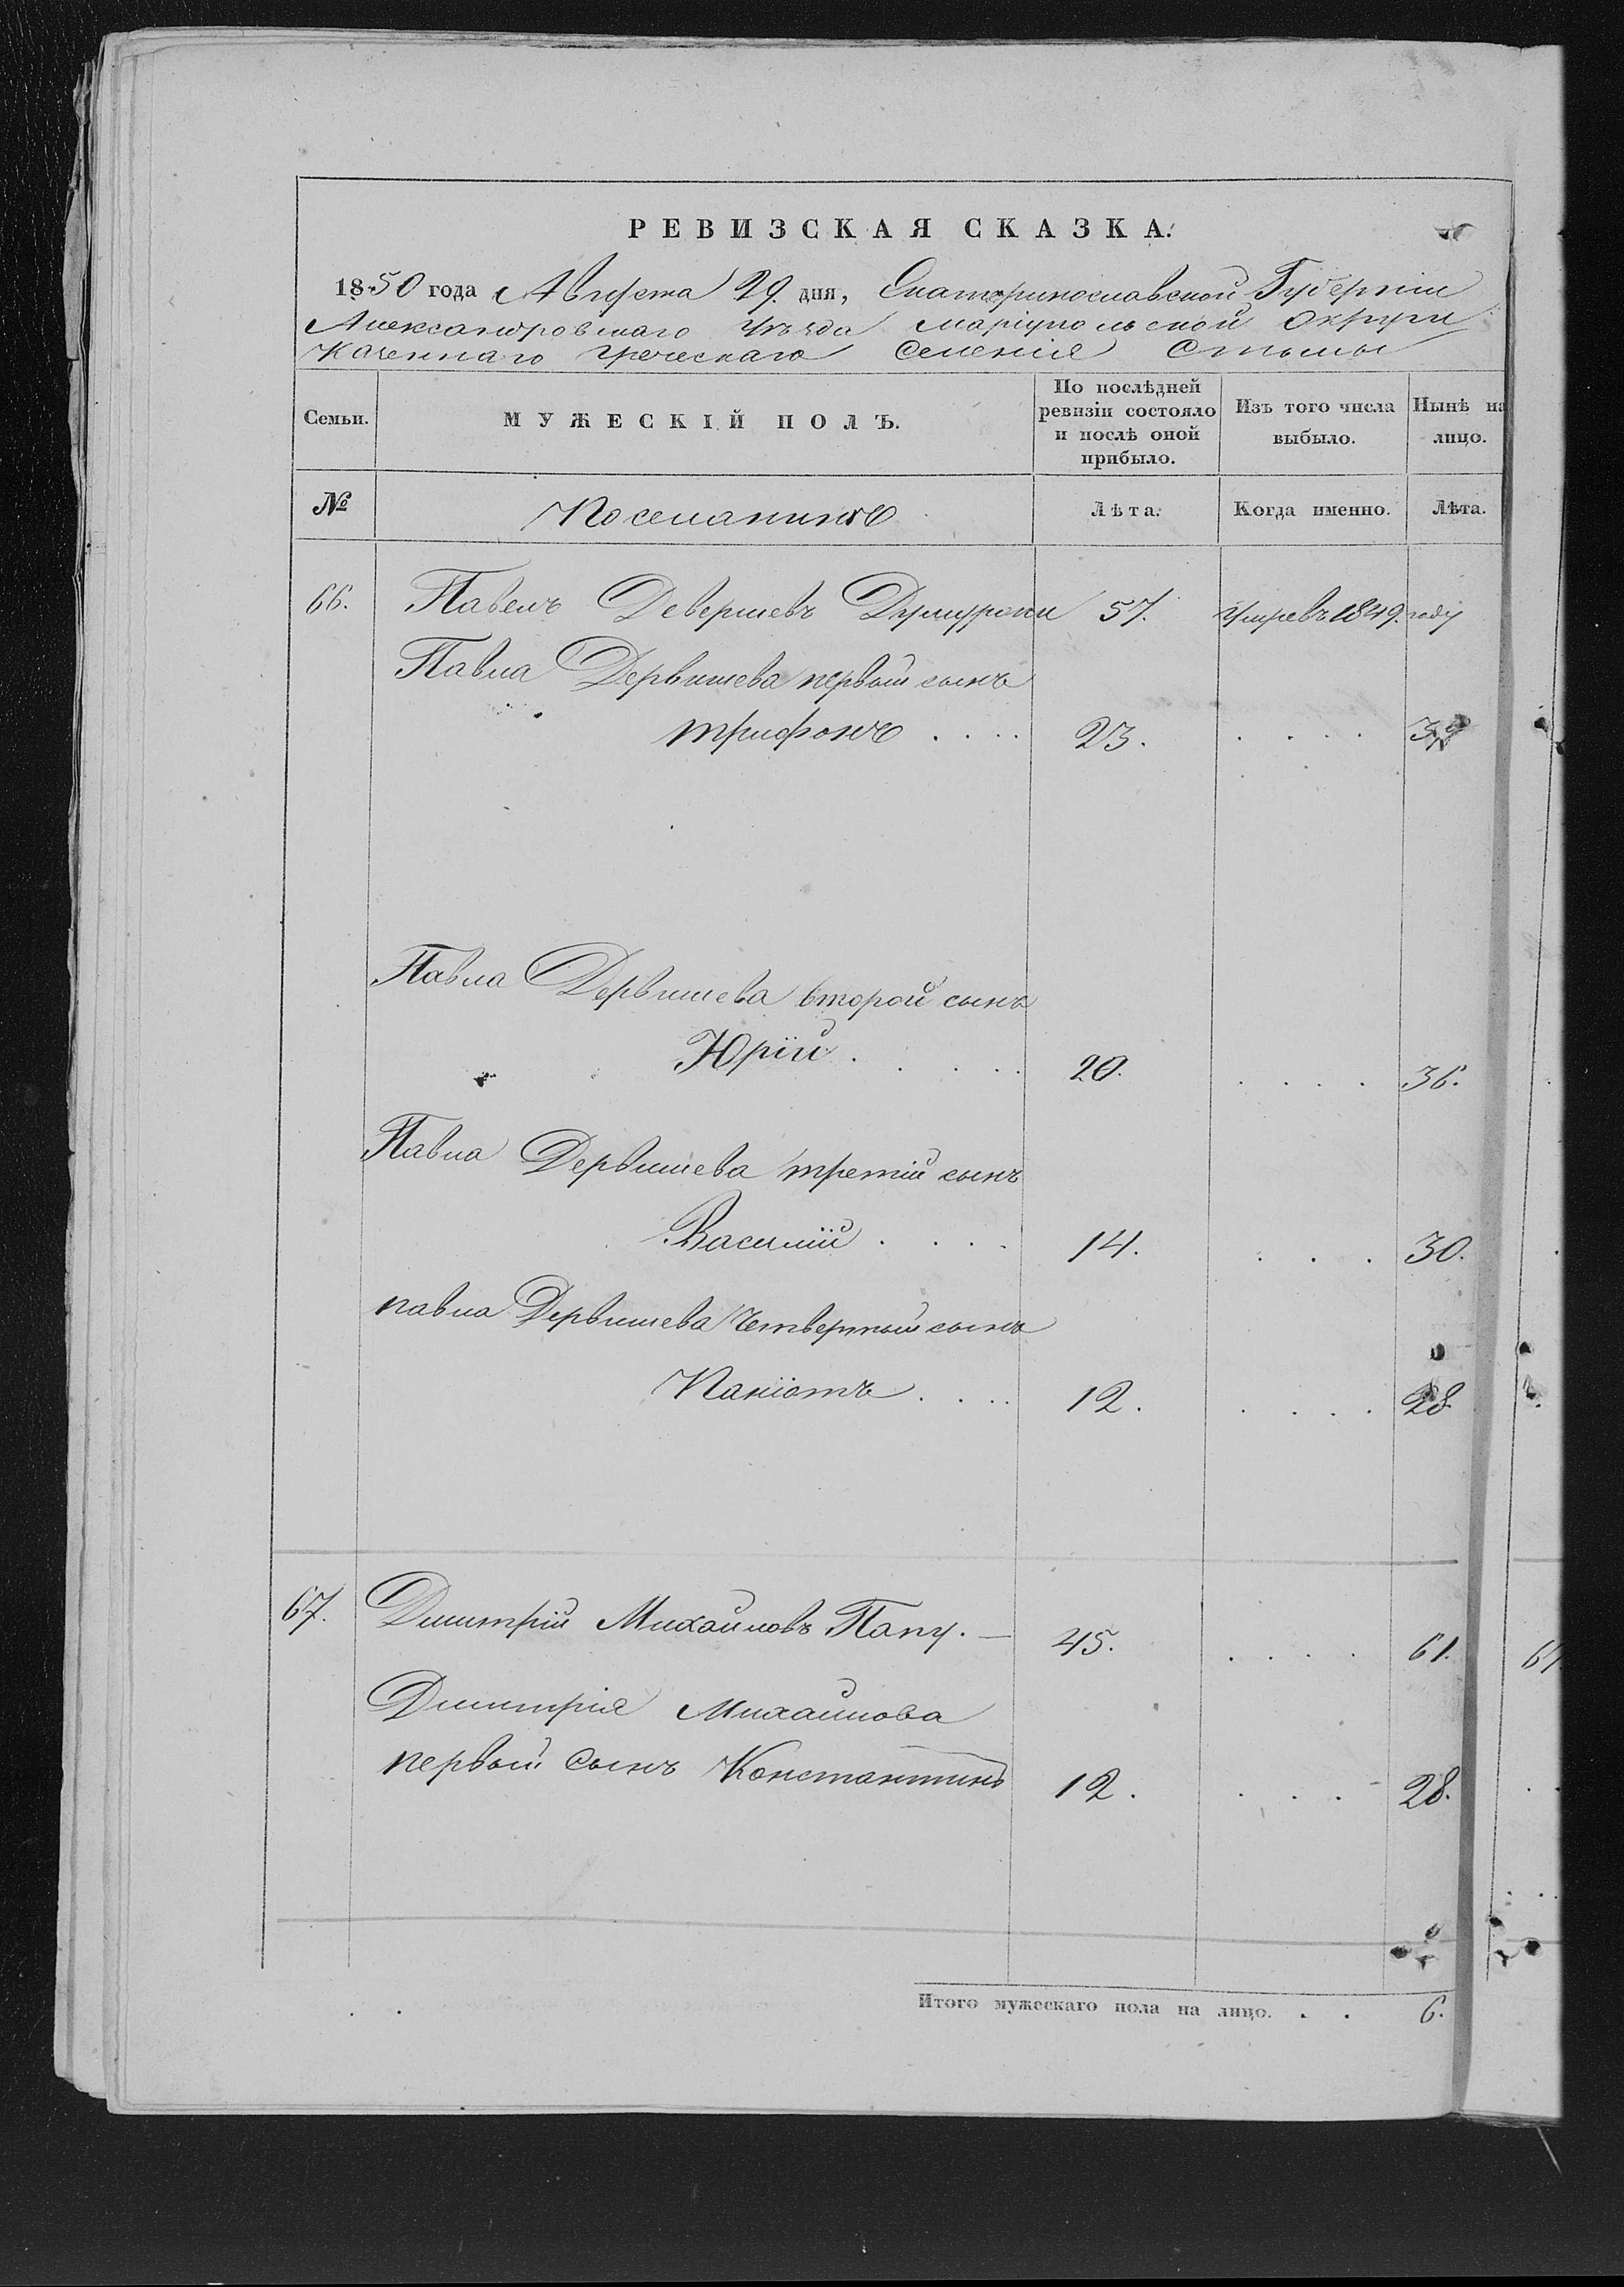 РЕВИЗСКАЯ СКАЗКА.
1850 года Августа 29. дня, Екатеринославской Губерніи
Александровскаго Уѣзда Маріупольской Округи
Казеннаго Греческаго Селенія Стылы
Семьи. МУЖЕСКІЙ ПОЛЪ. По послѣдней ревизіи состояло и послѣ оной прибыло. Изъ того числа выбыло. Нынѣ на лицо.
№ Поселянинъ Лѣта. Когда именно. Лѣта.
66. Павелъ 57. Умре въ 1849. году
Павла Дервишева первый сынъ
трифонъ . . . . 23. . . . . 39
Павла Дервишева второй сынъ
Юрій . . . . 20. . . . . 36.
Павла Дервишева третій сынъ
Василій . . . . 14. . . . 30.
павла Дервишева Четвертый сынъ
Паніотъ . . . . 12. . . . . 28.
67. Димитрій Михайловъ Папу. — 45. . . . . 61. 67
Димитрія Михайлова
первый Сынъ Константинъ 12. . . . 28.
Итого мужескаго пола на лицо. . . 6.